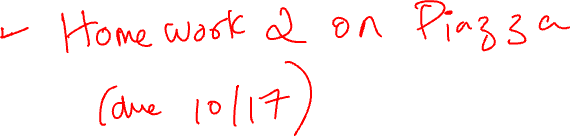 - Homework 2 on Piazza
(due 10/17)